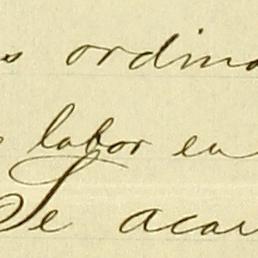 s ordina
labor en
Se acor